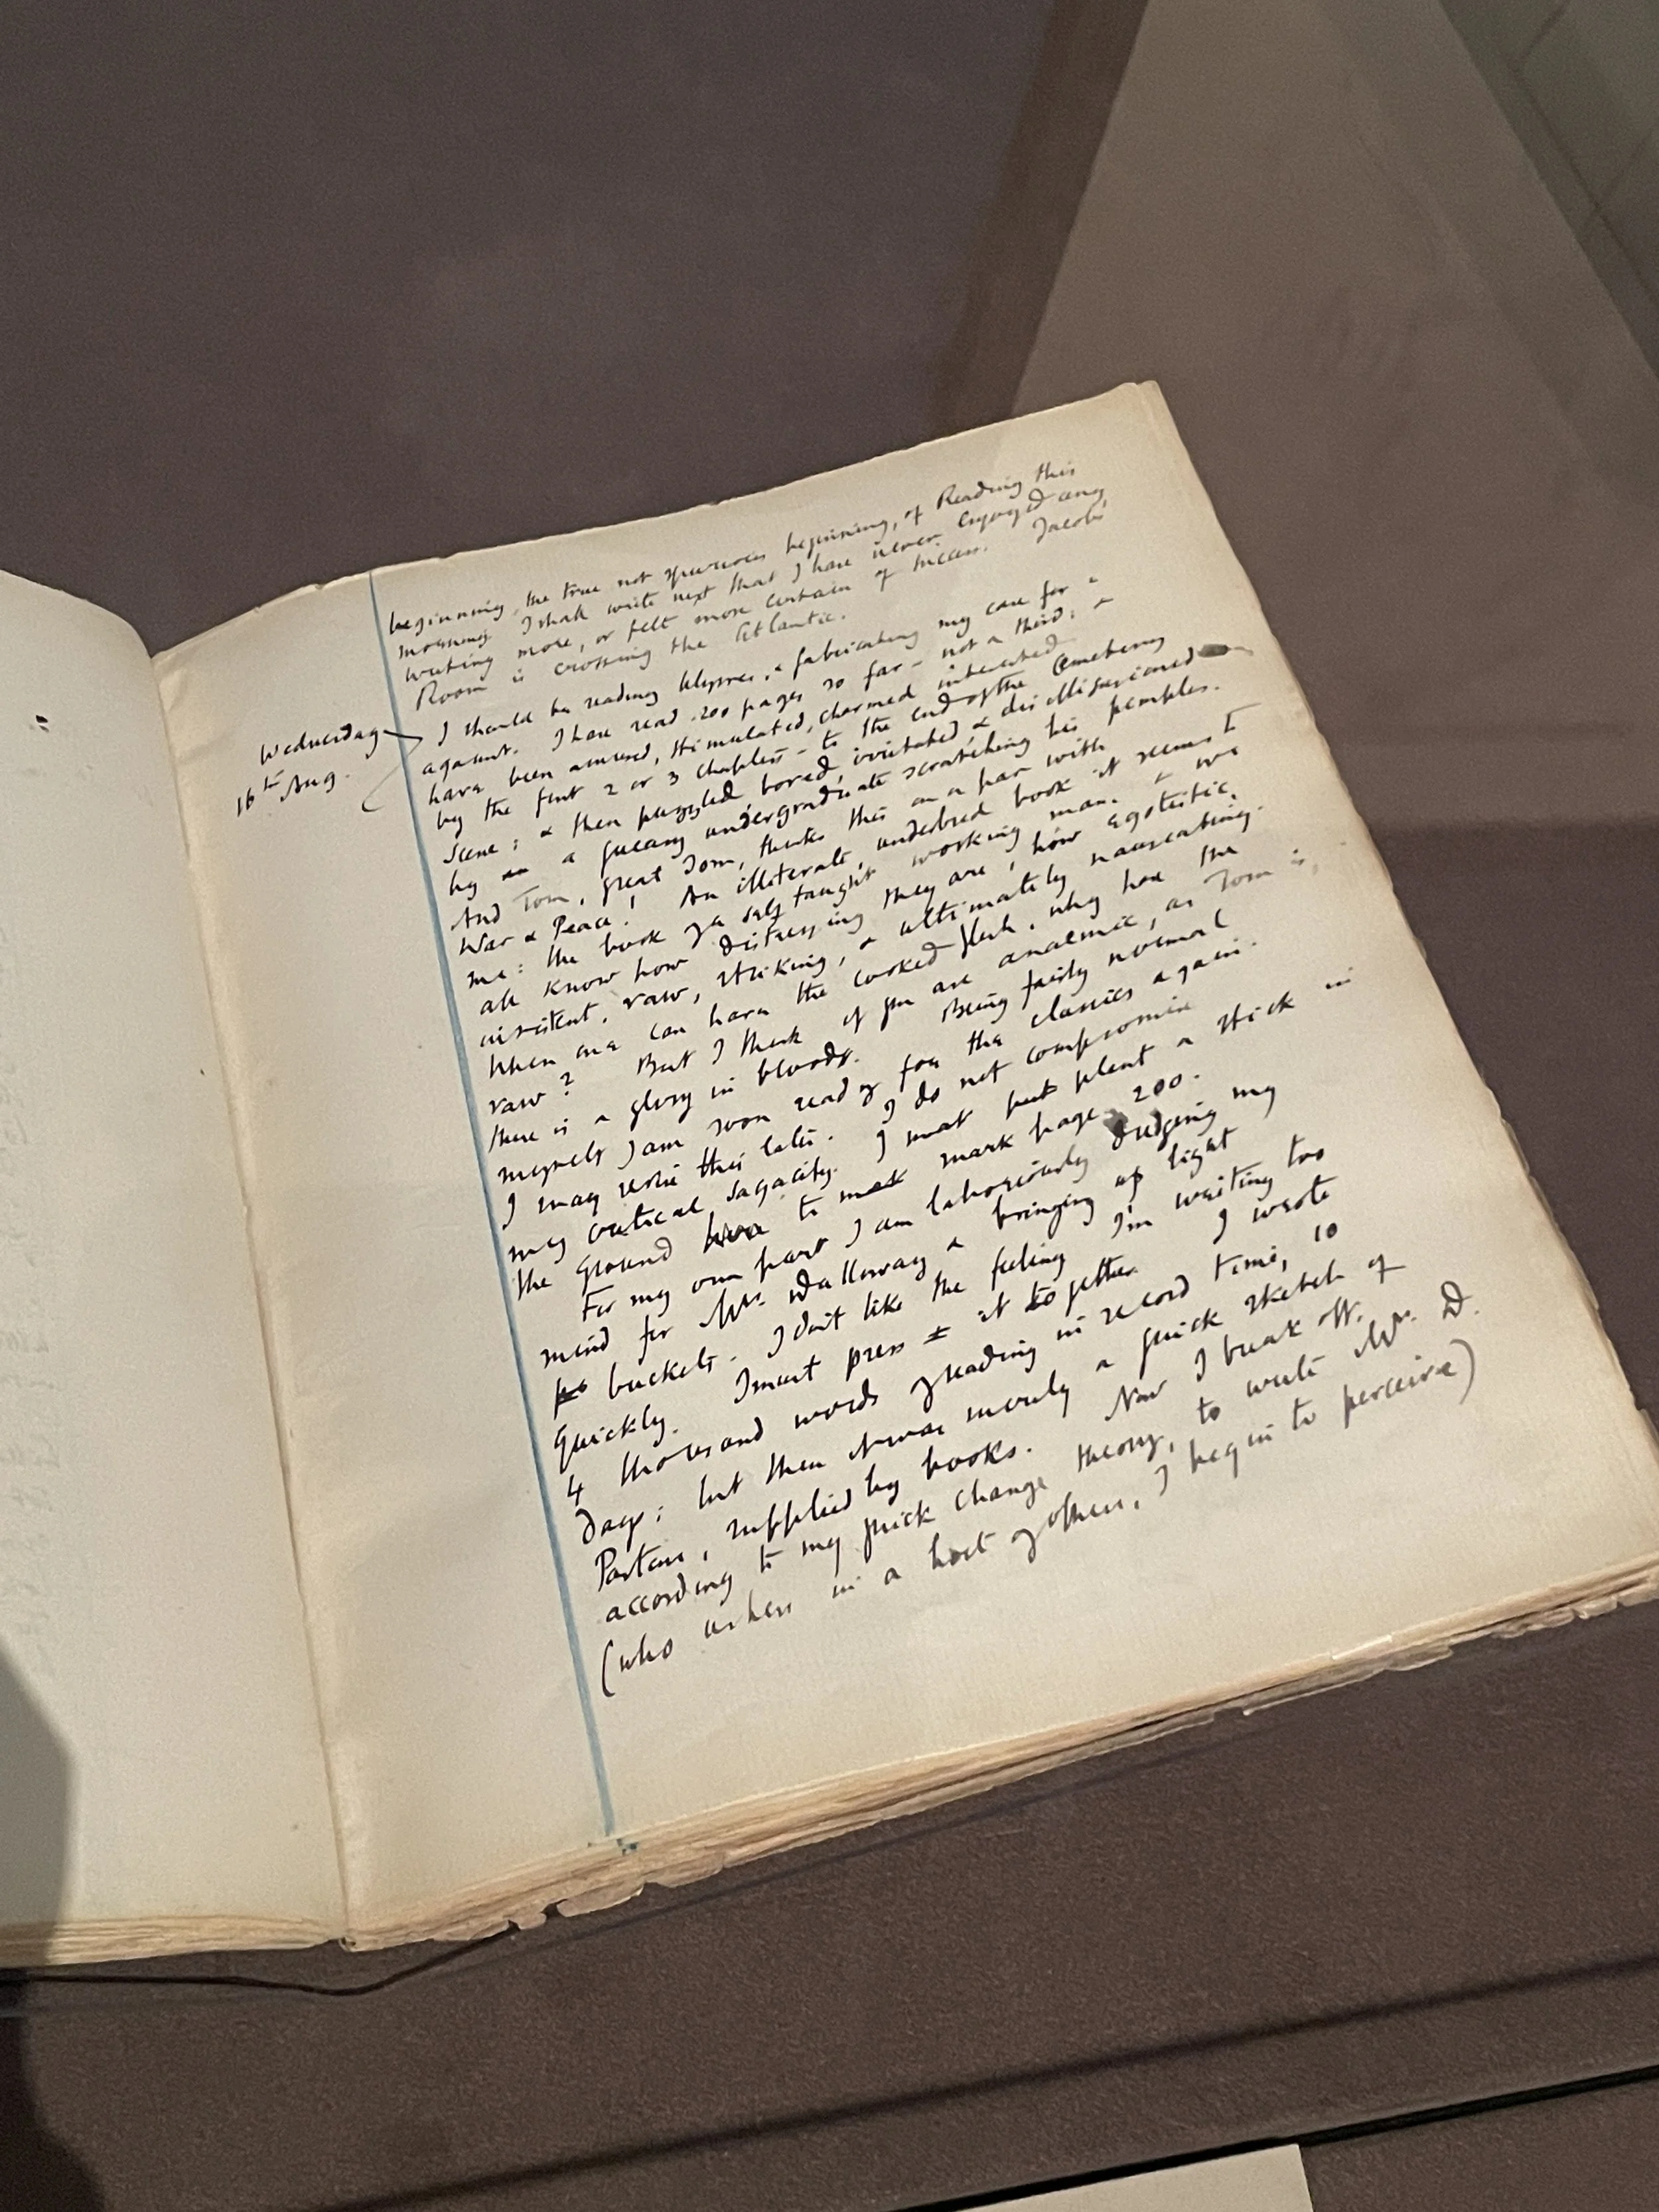 beginning, the true not spurious beginning, of Reading this
morning I shall write next that I have never enjoyed any
writing more, or felt more certain of success. Jacob's
Room is crossing the Atlantic.
Wednesday
16th Aug.
I should be reading Ulysses, & fabricating my case for &
against. I have read 200 pages so far – not a third; &
have been amused, stimulated, charmed interested
by the first 2 or 3 chapters – to the end of the Cemetery
scene; & then puzzled, bored, irritated, & disillusioned
by a queasy undergraduate scratching his pimples.
And Tom, great Tom, thinks this on a par with
War & Peace! An illiterate, underbred book it seems to
me: the book of a self taught working man, & we
all know how distressing they are, how egotistic,
insistent, raw, striking, & ultimately nauseating.
When one can have the cooked flesh, why have the
raw? But I think if you are anaemic, as Tom is,
there is a glory in blood. Being fairly normal
myself I am soon ready for the classics again.
I may revise this later. I do not compromise
my critical sagacity. I must put plant a stick in
the ground here to mark mark page 200.
For my own part I am laboriously dredging my
mind for Mrs. Dalloway & bringing up light
buckets. I don't like the feeling I'm writing too
quickly. I must press it together. I wrote
4 thousand words of reading in record time, 10
days; but then it was merely a quick sketch of
Pastons, supplied by books. Now I break off,
according to my quick change theory, to write Mrs. D.
(who ushers in a host of others, I begin to perceive)